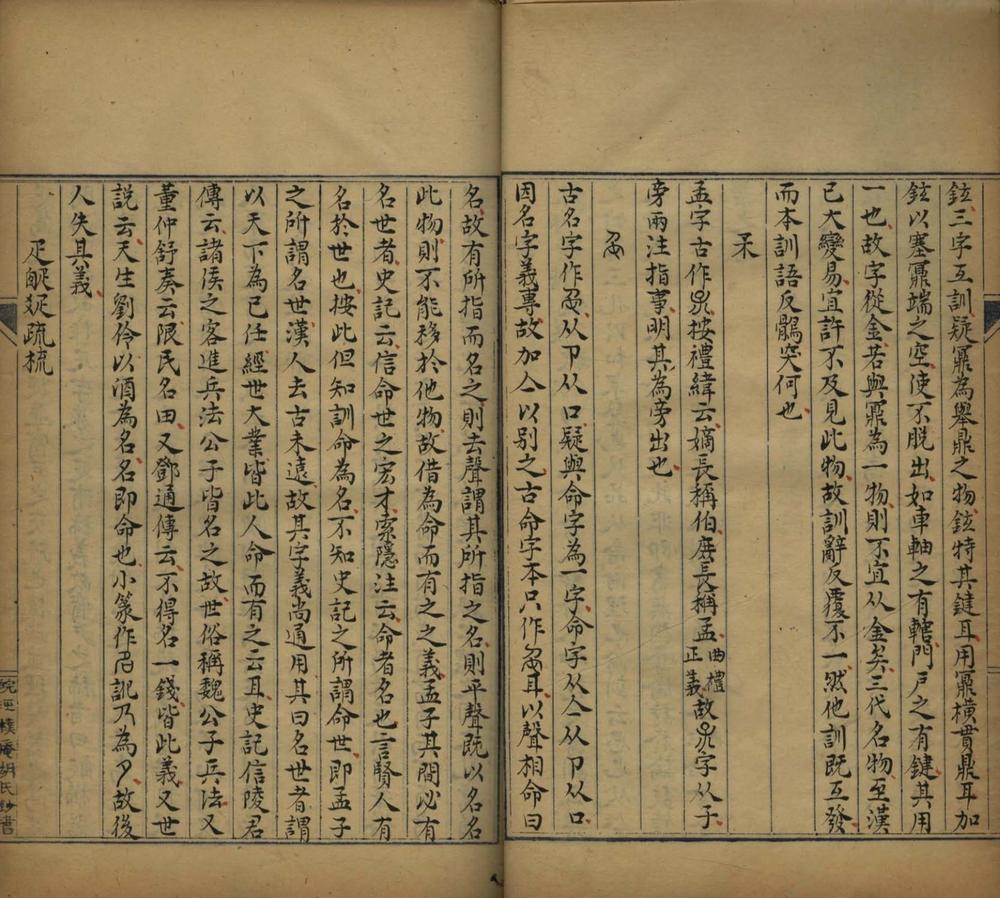 鉉三字互訓疑鼏為舉鼎之物鉉特其鍵耳用鼏橫貫鼎耳加
鉉以塞鼏端之空使不脫出如車軸之有轄門戶之有鍵其用
一也故字從金若與鼏為一物則不宜从金矣三代名物至漢
已大變易宜許不及見此物故訓辭反覆不一然他訓既互發
而本訓語反鶻突何也
孟字古作按禮緯云嫡長稱伯庶長稱孟曲禮正義故字从子
旁兩注指事明其為旁出也
古名字作从卪从口疑與命字為一字命字从亼从卪从口
因名字義專故加亼以別之古命字本只作耳以聲相命曰
名故有所指而名之則去聲謂其所指之名則平聲既以名名
此物則不能移於他物故借為命而有之之義孟子其間必有
名世者史記云信命世之宏才索隱注云命者名也言賢人有
名於世也按此但知訓命為名不知史記之所謂命世即孟子
之所謂名世漢人去古未遠故其字義尚通用其曰名世者謂
以天下為己任經世大業皆此人命而有之云耳史記信陵君
傳云諸侯之客進兵法公子皆名之故世俗稱魏公子兵法又
董仲舒奏云限民名田又鄧通傳云不得名一錢皆此義又世
說云天生劉伶以酒為名名即命也小篆作訛乃為夕故後
人失其義
疋疏梳
皖樸庵胡氏鈔書